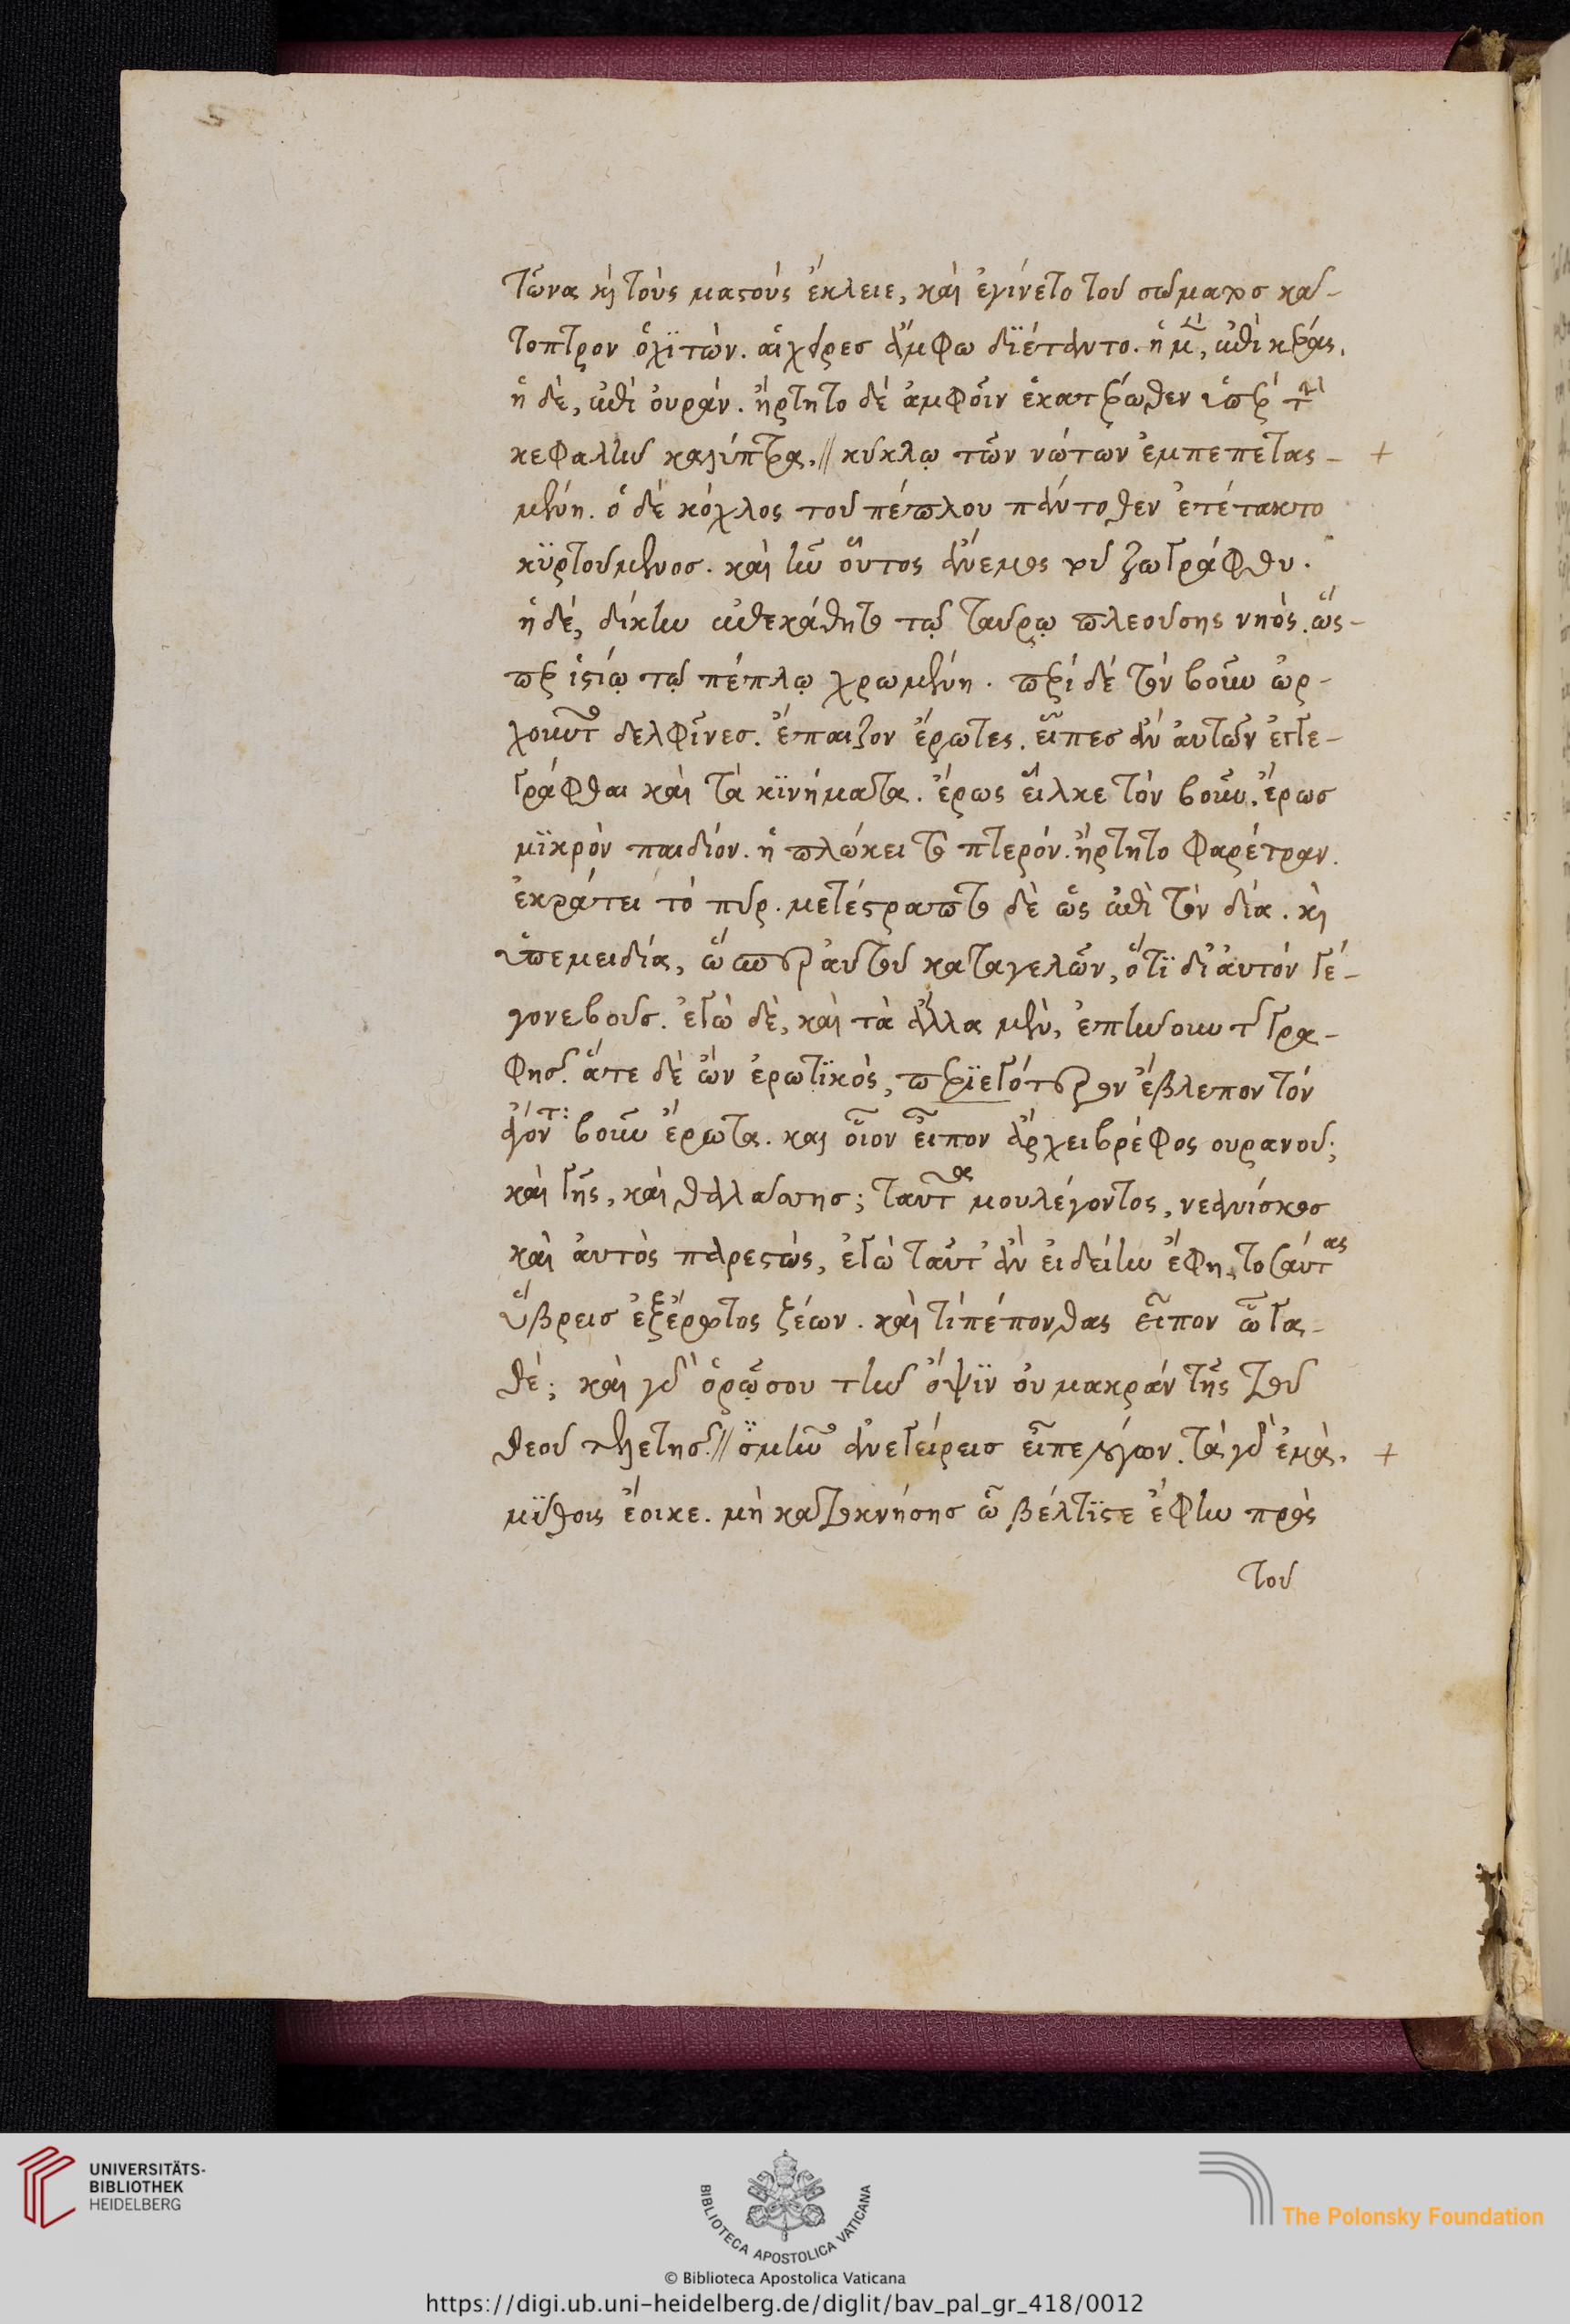 τῶνα κὶ τοὺς μαςοὺς ἔκλειε, καὶ ἐγίνετο τοῦ σώματος κα-
τοπτρον ὁ χϊτὼν. αἱ χεῖρες ἄμφω δϊέταντο. ἡ μὲν, ἐπὶ κέρας.
ἡ δὲ, ἐπὶ οὐράν. ἤρτητο δὲ ἀμφοῖν ἑκατέρωθεν ὑπὲρ τὴν
κεφαλὴν καλύπτρα. // κύκλῳ τῶν νώτων ἐμπεπετας- +
μένη. ὁ δὲ κόχλος τοῦ πέπλου πάντοθεν ἐτέτακτο
κϋρτούμενος. καὶ ἦν οὗτος ἄνεμος τοῦ ζωγράφου.
ἡ δὲ, δίκην ἐπεκάθητο τῷ ταύρῳ πλεούσης νηὸς. ὥς-
περ ἱςίῳ τῷ πέπλῳ χρωμένη. περὶ δὲ τὸν βοῦν ὠρ-
χοῦντο δελφῖνες. ἔπαιζον ἔρωτες. εἶπες ἂν αὐτῶν ἐγγε-
γράφθαι καὶ τὰ κϊνήματα. ἔρως εἷλκε τὸν βοῦν. ἔρως
μϊκρὸν παιδίον. ἡπλώκει τὸ πτερόν. ἤρτητο φαρέτραν.
ἐκράτει τὸ πῦρ. μετέςραπτο δὲ ὡς ἐπὶ τὸν δία. κὶ
ὑπεμειδία, ὥσπερ αὐτοῦ καταγελῶν, ὅτϊ δι' αὐτὸν γέ-
γονε βοῦς. ἐγὼ δὲ, καὶ τὰ ἄλλα μὲν, ἐπῄνουν τῆς γρα-
φῆς. ἅτε δὲ ὢν ἐρωτϊκὸς, περϊεγότερον ἔβλεπον τὸν
ἄγοντ: βοῦν ἔρωτα. καὶ οἷον εἶπον ἄρχει βρέφος οὐρανοῦ;
καὶ γῆς, καὶ θαλάσσης; ταῦτα μου λέγοντος, νεανίσκος
καὶ αὐτὸς παρεςὼς, ἐγὼ ταῦτ' ἂν εἰδείην ἔφη, τοσαύτας
ὕβρεις ἐξ ἔρωτος ξέων. καὶ τί πέπονθας εἶπον ὦ γα-
θέ; καὶ γὰρ ὁρῶ σου τὴν ὄψϊν οὐ μακρὰν τῆς τοῦ
θεοῦ τελετῆς. // σμῆνος ἀνεγείρεις εἶπε λόγων. τὰ γὰρ ἐμὰ, +
μϋθοις ἔοικε. μὴ κατοκνήσης ὦ βέλτϊςε ἔφην πρὸς
τοῦ
UNIVERSITÄTS-
BIBLIOTHEK
HEIDELBERG
BIBLIOTECA APOSTOLICA VATICANA
The Polonsky Foundation
© Biblioteca Apostolica Vaticana
https://digi.ub.uni-heidelberg.de/diglit/bav_pal_gr_418/0012